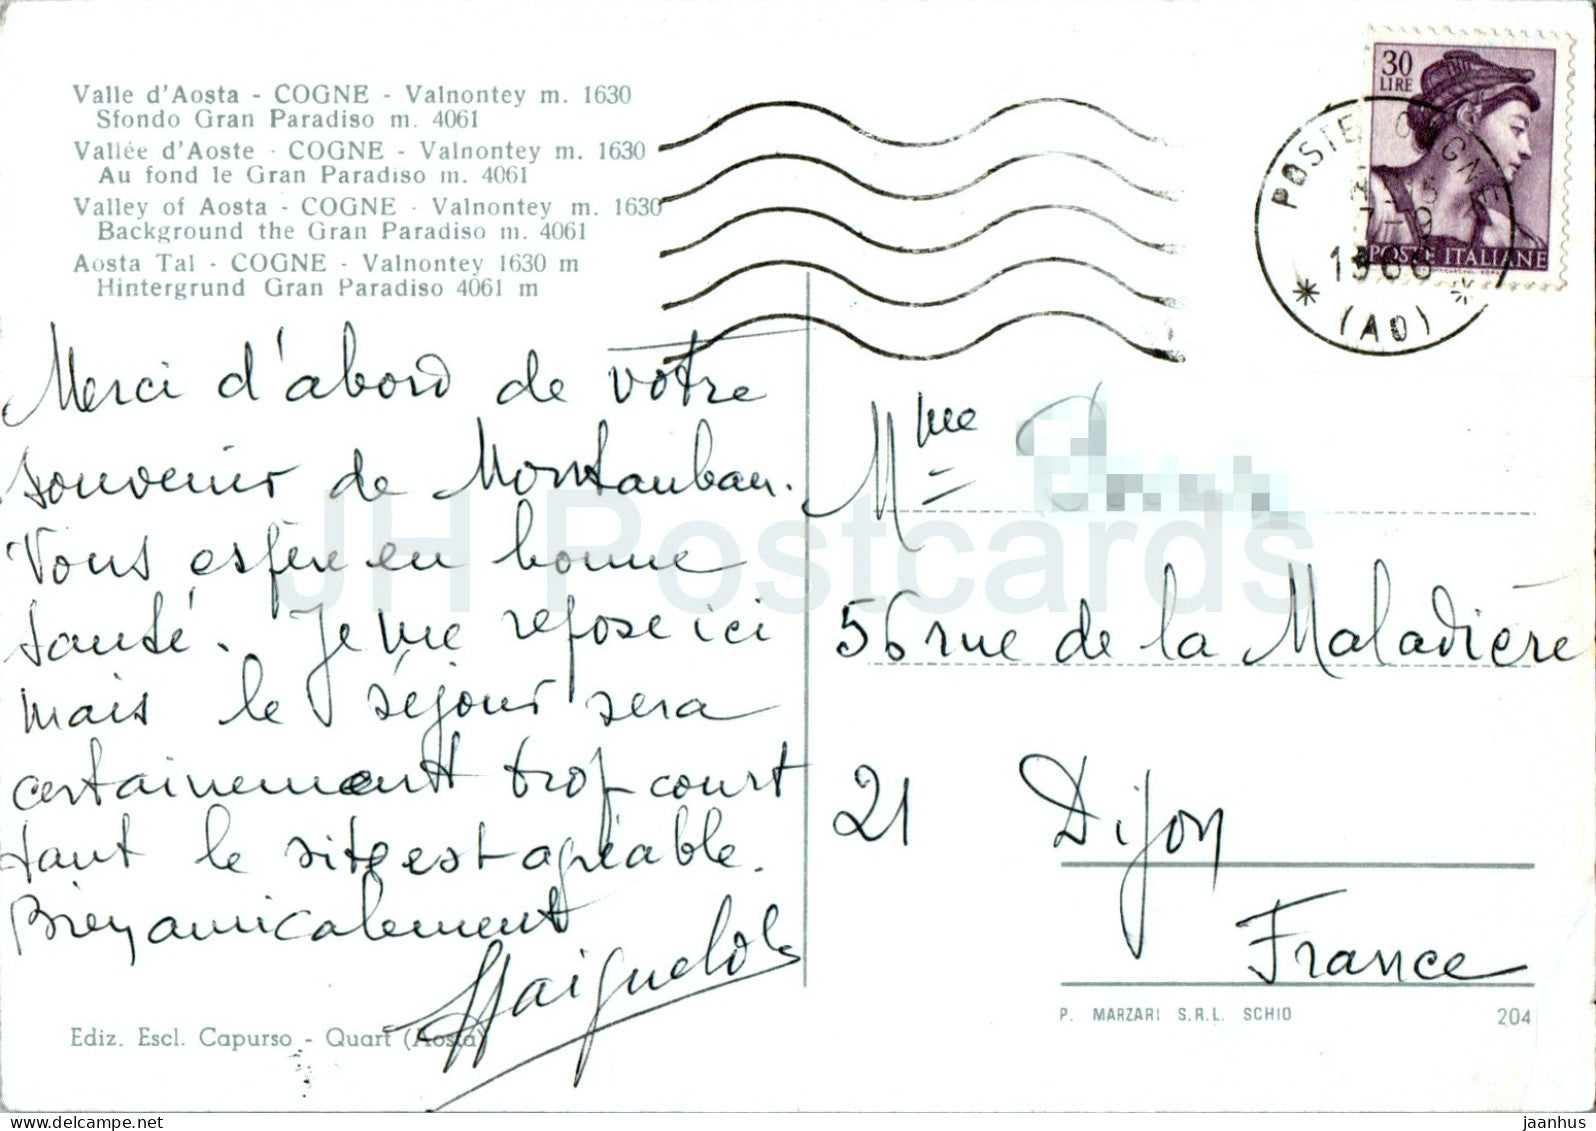 Valle d'Aosta - COGNE - Valnontey m. 1630
Sfondo Gran Paradiso m. 4061
Vallée d'Aoste - COGNE - Valnontey m. 1630
Au fond le Gran Paradiso m. 4061
Valley of Aosta - COGNE - Valnontey m. 1630
Background the Gran Paradiso m. 4061
Aosta Tal - COGNE - Valnontey 1630 m
Hintergrund Gran Paradiso 4061 m
Merci d'abord de votre
souvenir de Montauban.
Vous espère en bonne
santé. Je me repose ici
mais le séjour sera
certainement trop court
tant le site est agréable.
Bien amicalement
Ediz. Escl. Capurso - Quart (Aosta)
30
LIRE
POSTE ITALIANE
POSTE COGNE
7-9
1966
(AO)
Mme
56 rue de la Maladière
21 Dijon
France
P. MARZARI S.R.L. SCHIO 204
JH Postcards
www.delcampe.net
jaanhus